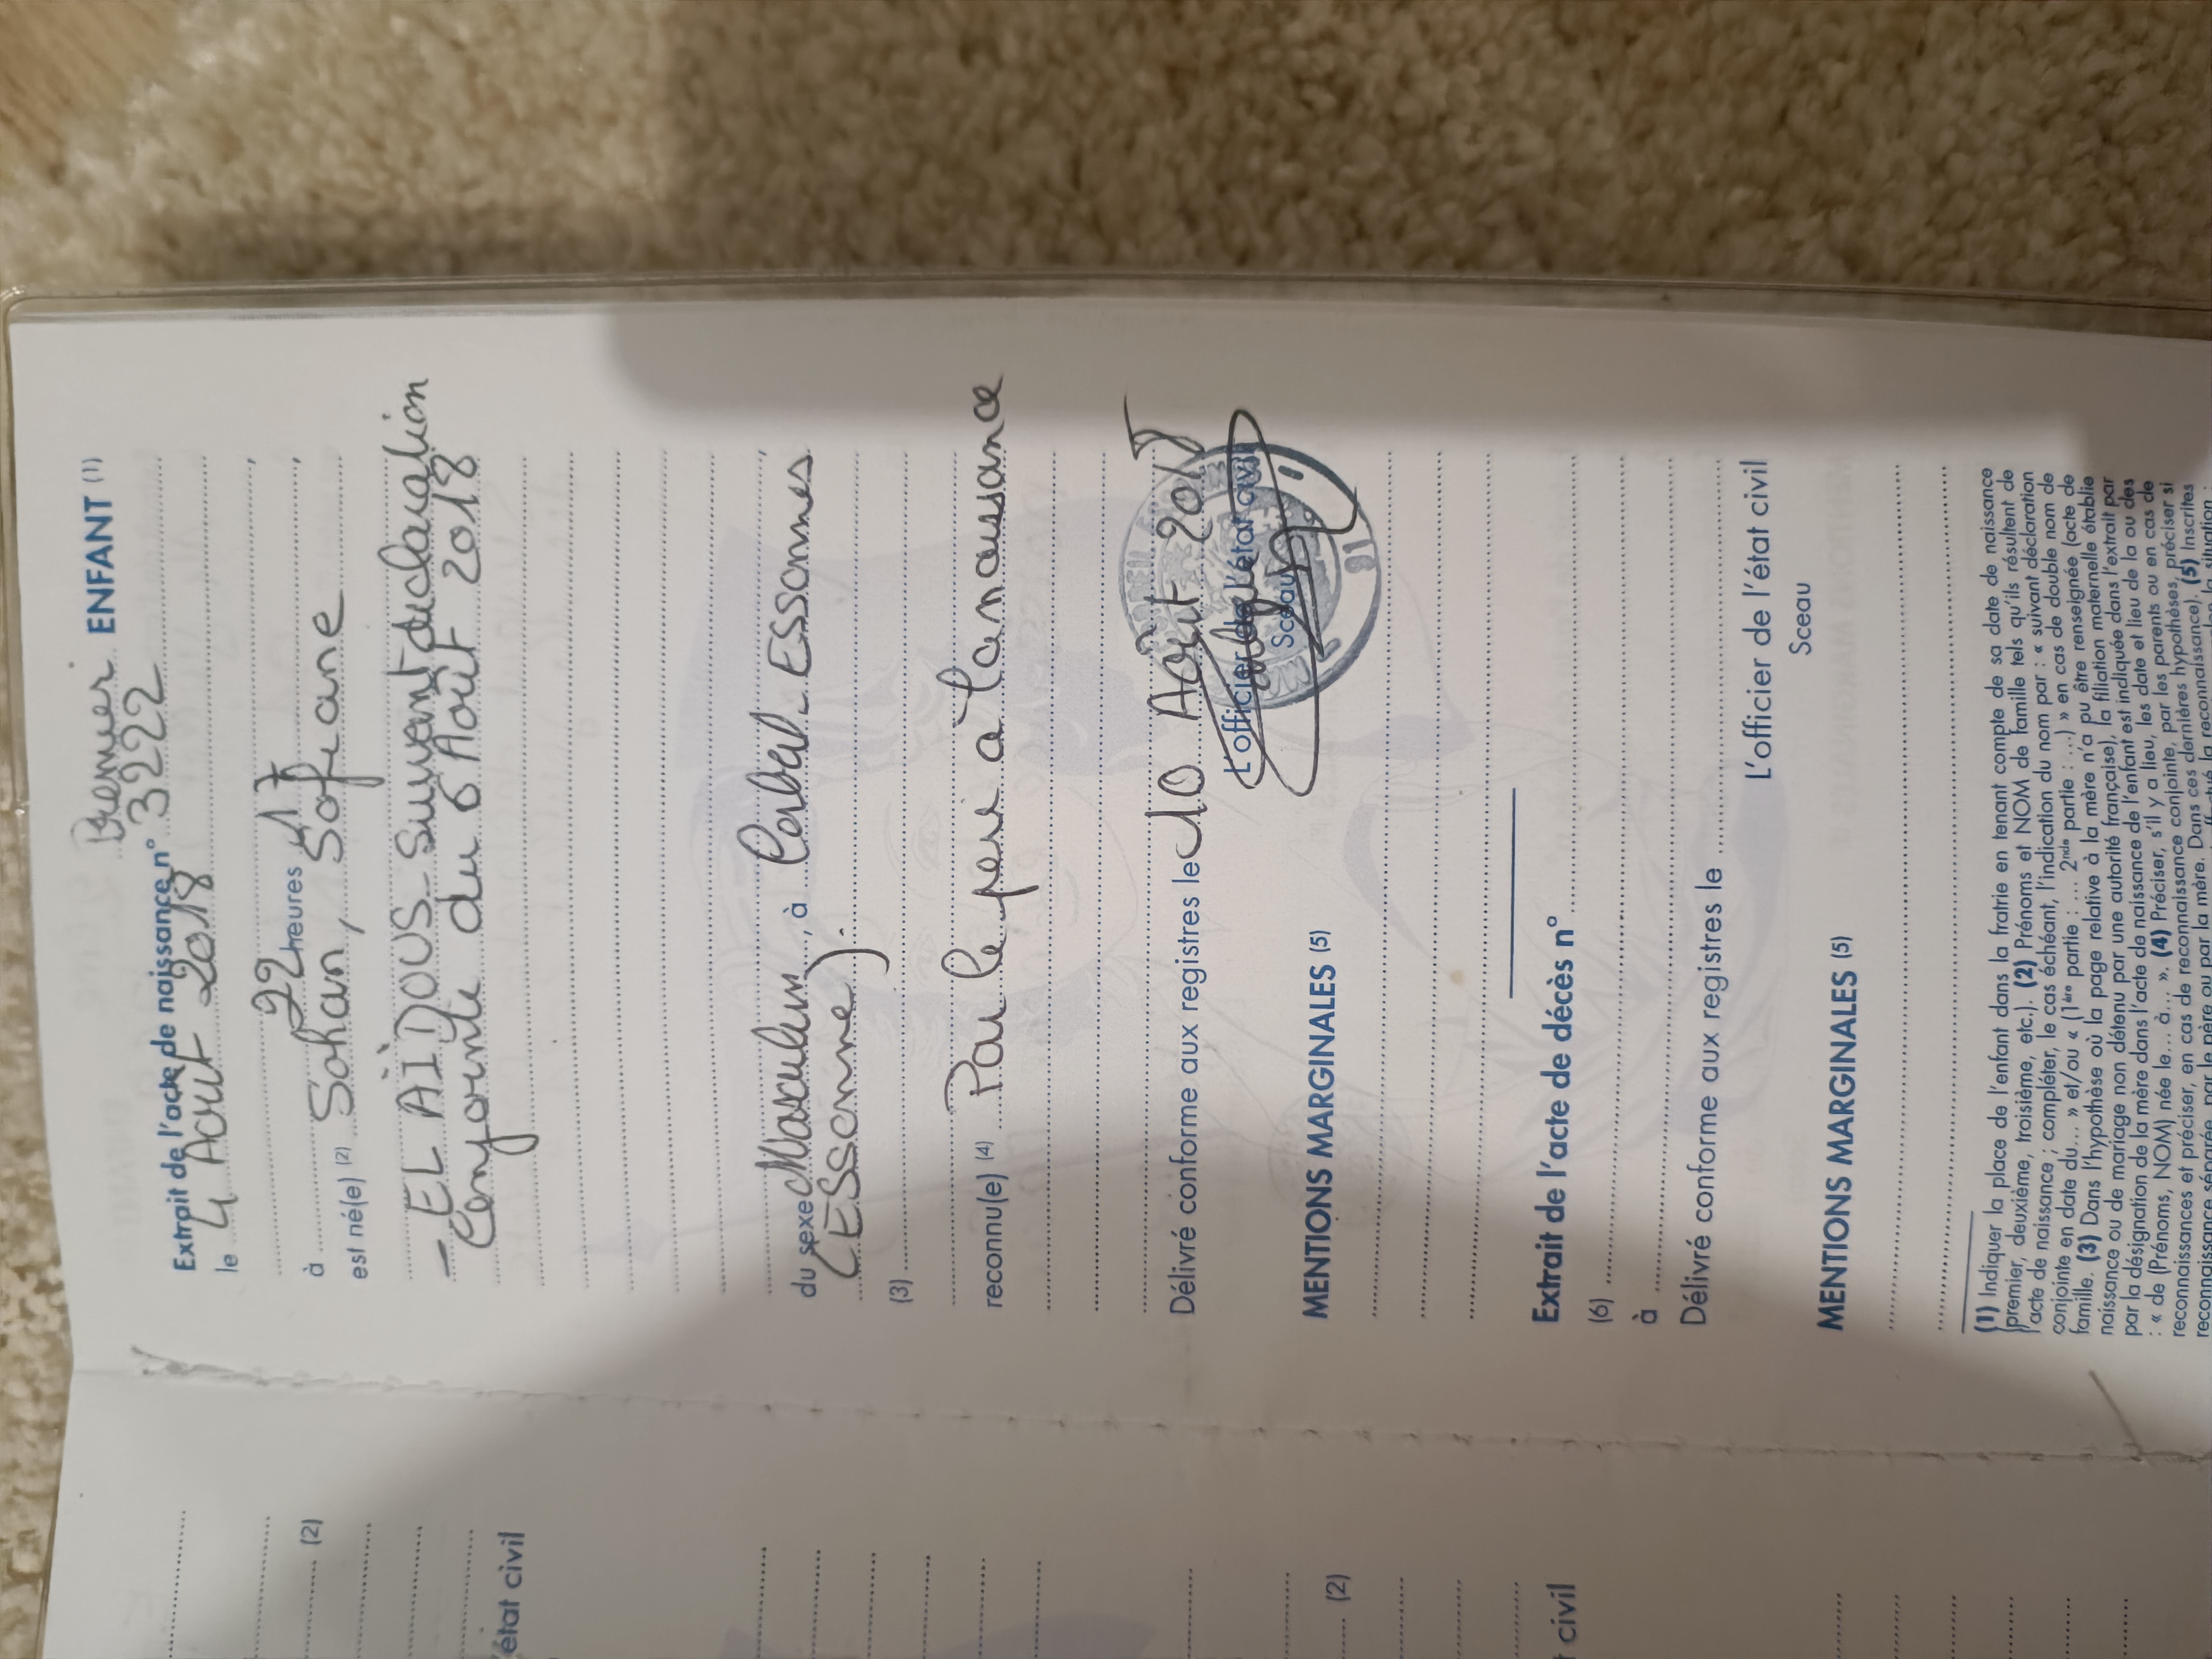 Premier ENFANT (1)
Extrait de l'acte de naissance n° 3222
le 4 Août 2018
à 22 heures 17,
est né(e) (2) Sohan, Sofiane
- EL AÏDOUS - Suivant déclaration
Conjointe du 6 Août 2018
du sexe Masculin, à Corbeil-Essonnes,
(Essonne).
(3)
reconnu(e) (4) Par le père à la naissance
Délivré conforme aux registres le 10 Août 2018
L'officier de l'état civil
Sceau
MENTIONS MARGINALES (5)
Extrait de l'acte de décès n°
(6)
à
Délivré conforme aux registres le
L'officier de l'état civil
Sceau
MENTIONS MARGINALES (5)
(1) Indiquer la place de l'enfant dans la fratrie en tenant compte de sa date de naissance
(premier, deuxième, troisième, etc.). (2) Prénoms et NOM de famille tels qu'ils résultent de
l'acte de naissance ; compléter, le cas échéant, l'indication du nom par : « suivant déclaration
conjointe en date du... » et/ou « (1ère partie : ... 2nde partie : ...) » en cas de double nom de
famille. (3) Dans l'hypothèse où la page relative à la mère n'a pu être renseignée (acte de
naissance ou de mariage non détenu par une autorité française), la filiation maternelle établie
par la désignation de la mère dans l'acte de naissance de l'enfant est indiquée dans l'extrait par
: « de (Prénoms, NOM) née le... à... ». (4) Préciser, s'il y a lieu, les date et lieu de la ou des
reconnaissances et préciser, en cas de reconnaissance conjointe, par les parents ou en cas de
reconnaissance séparée, par le père ou par la mère. Dans ces dernières hypothèses, préciser si
la reconnaissance). (5) Inscrites
(2)
'état civil
(2)
civil